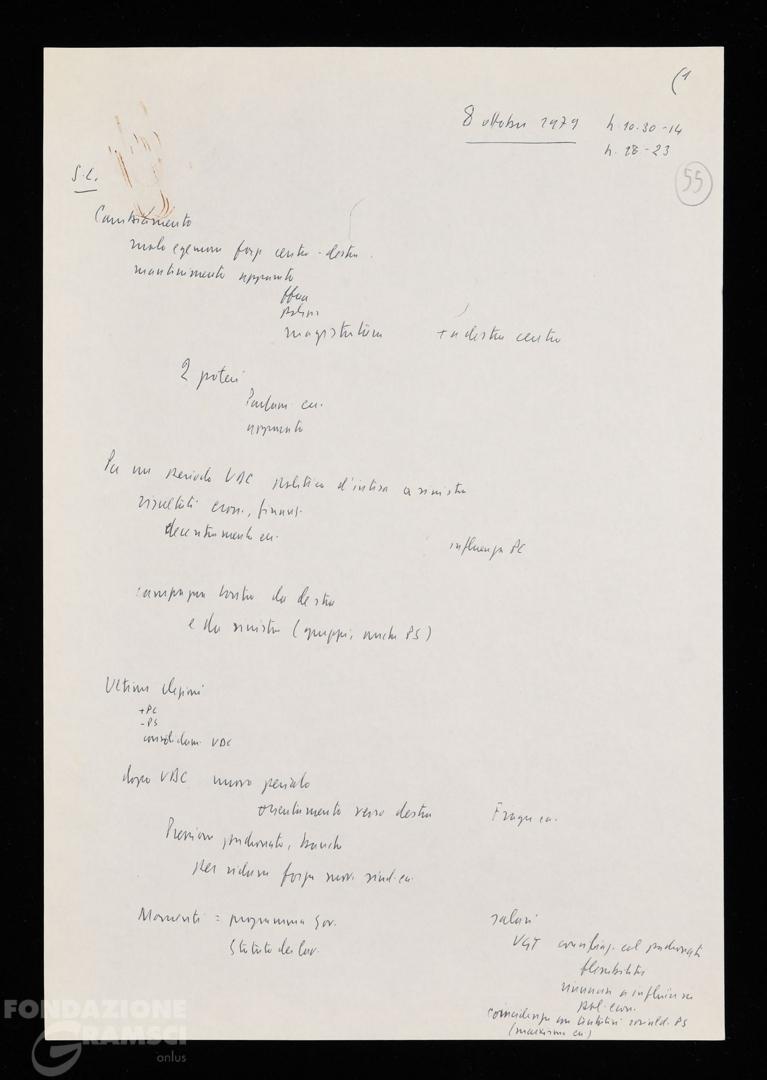 (1
8 ottobre 1979 h. 10.30-14
h. 18-23
55
S.C.
Cambiamento
ruolo egemone forze centro-destra
mantenimento apparato
polizia
magistratura + a destra centro
2 poteri
Parlam. ecc.
apparato
Per un periodo UDC politica d'intesa a sinistra
risultati econ., finanz.
decentramento ecc.
influenza PC
campagna contro da destra
e da sinistra (gruppi, anche PS)
Ultime elezioni
+PC
-PS
consolidam. UDC
dopo UDC nuovo periodo
orientamento verso destra Fraga ecc.
Pressione padronato, banche
per ridurre forza mov. sind. ecc.
Momenti = programma gov. salari
Statuto dei lav. UGT coinfluenz. col padronato
flessibilità
rinuncia a influire su
pol. econ.
coincidenza con tentativi sociald. PS
(marxismo ecc.)
FONDAZIONE
GRAMSCI
onlus